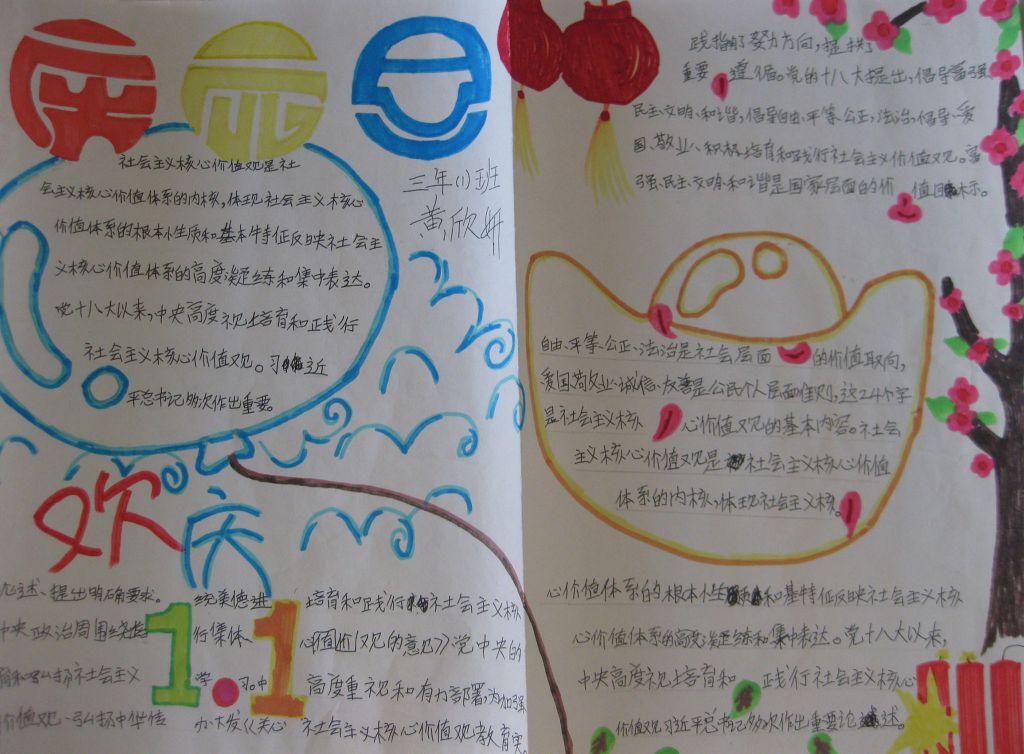 庆元旦
社会主义核心价值观是社
会主义核心价值体系的内核,体现社会主义核心
价值体系的根本性质和基本特征反映社会主
义核心价值体系的高度凝练和集中表达。
党十八大以来,中央高度视培育和践行
社会主义核心价值观。习近
平总书记多次作出重要。
三年(1)班
黄欣妍
欢庆
1.1
论述、提出明确要求。
中央政治周围绕培
育和弘扬社会主义
价值观、弘扬中华传
统美德进
行集体
学习。中
办大发《关心
培育和践行社会主义核
心价值观的意见》党中央的
高度重视和有力部署,为加强
社会主义核心价值观教育实
践指明了努力方向,提供了
重要遵循。党的十八大提出,倡导富强、
民主、文明、和谐,倡导自由、平等、公正、法治,倡导爱
国、敬业、积极培育和践行社会主义价值观。富
强、民主、文明、和谐是国家层面的价值目标。
自由、平等、公正、法治是社会层面的价值取向,
爱国、敬业、诚信、友善是公民个人层面准则,这24个字
是社会主义核心价值观的基本内容。社会
主义核心价值观是社会主义核心价值
体系的内核,体现社会主义核
心价值体系的根本性和基特征反映社会主义核
心价值体系的高度凝练和集中表达。党十八大以来,
中央高度视培育和践行社会主义核心
价值观习近平总书记多次作出重要论述。